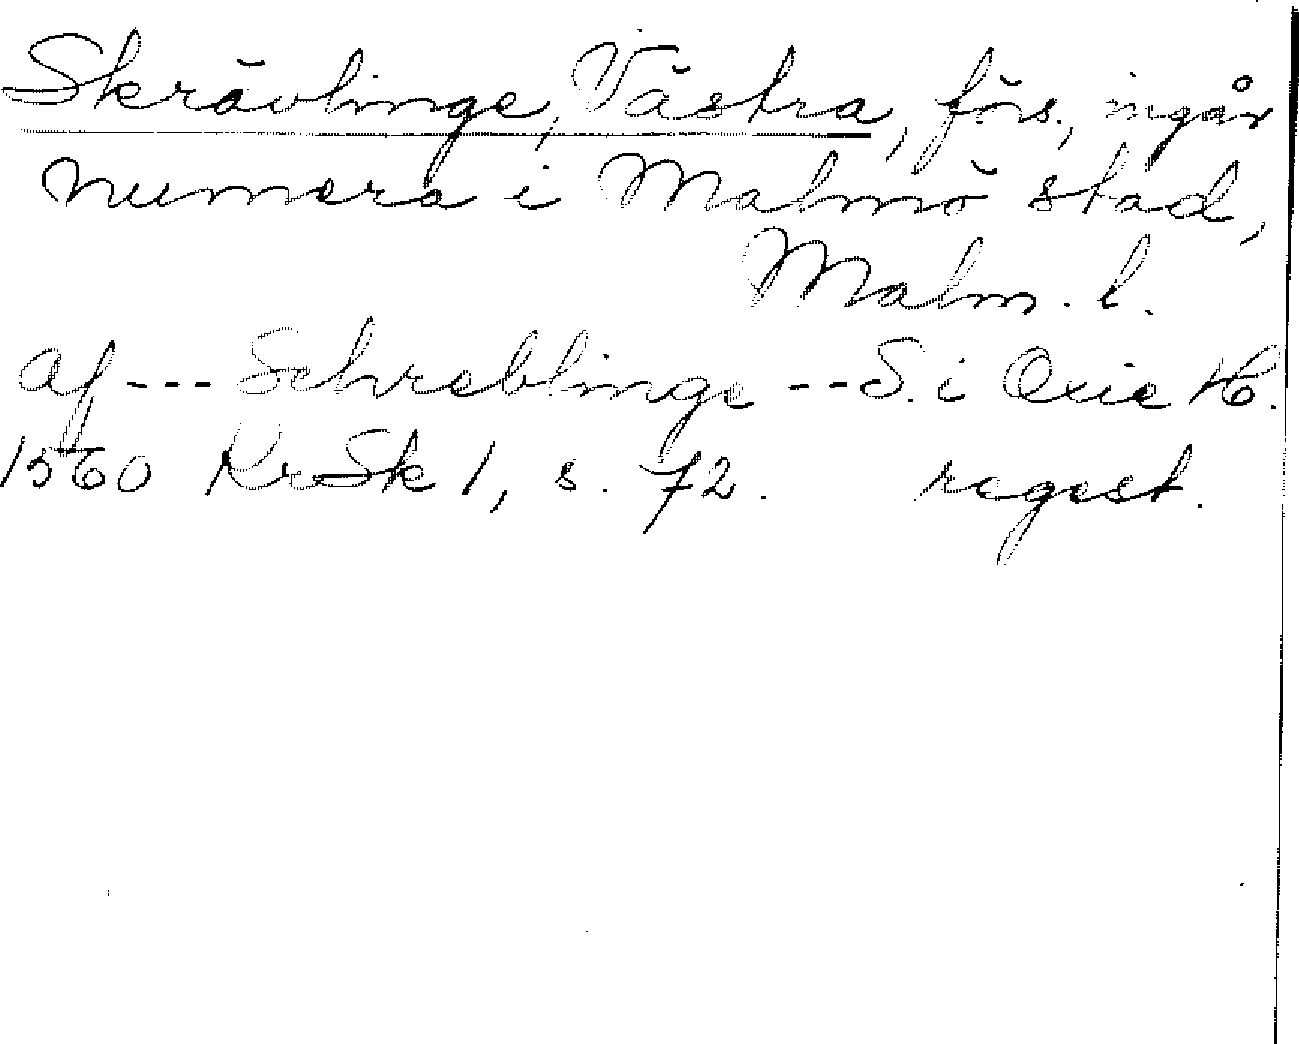 Skrävlinge, Västra, förs., ingår
numera i Malmö stad,
Malm. l.
af --- Schreblinge -- S. i Oxie H.
1560 KrSk 1, s. 72. regest.